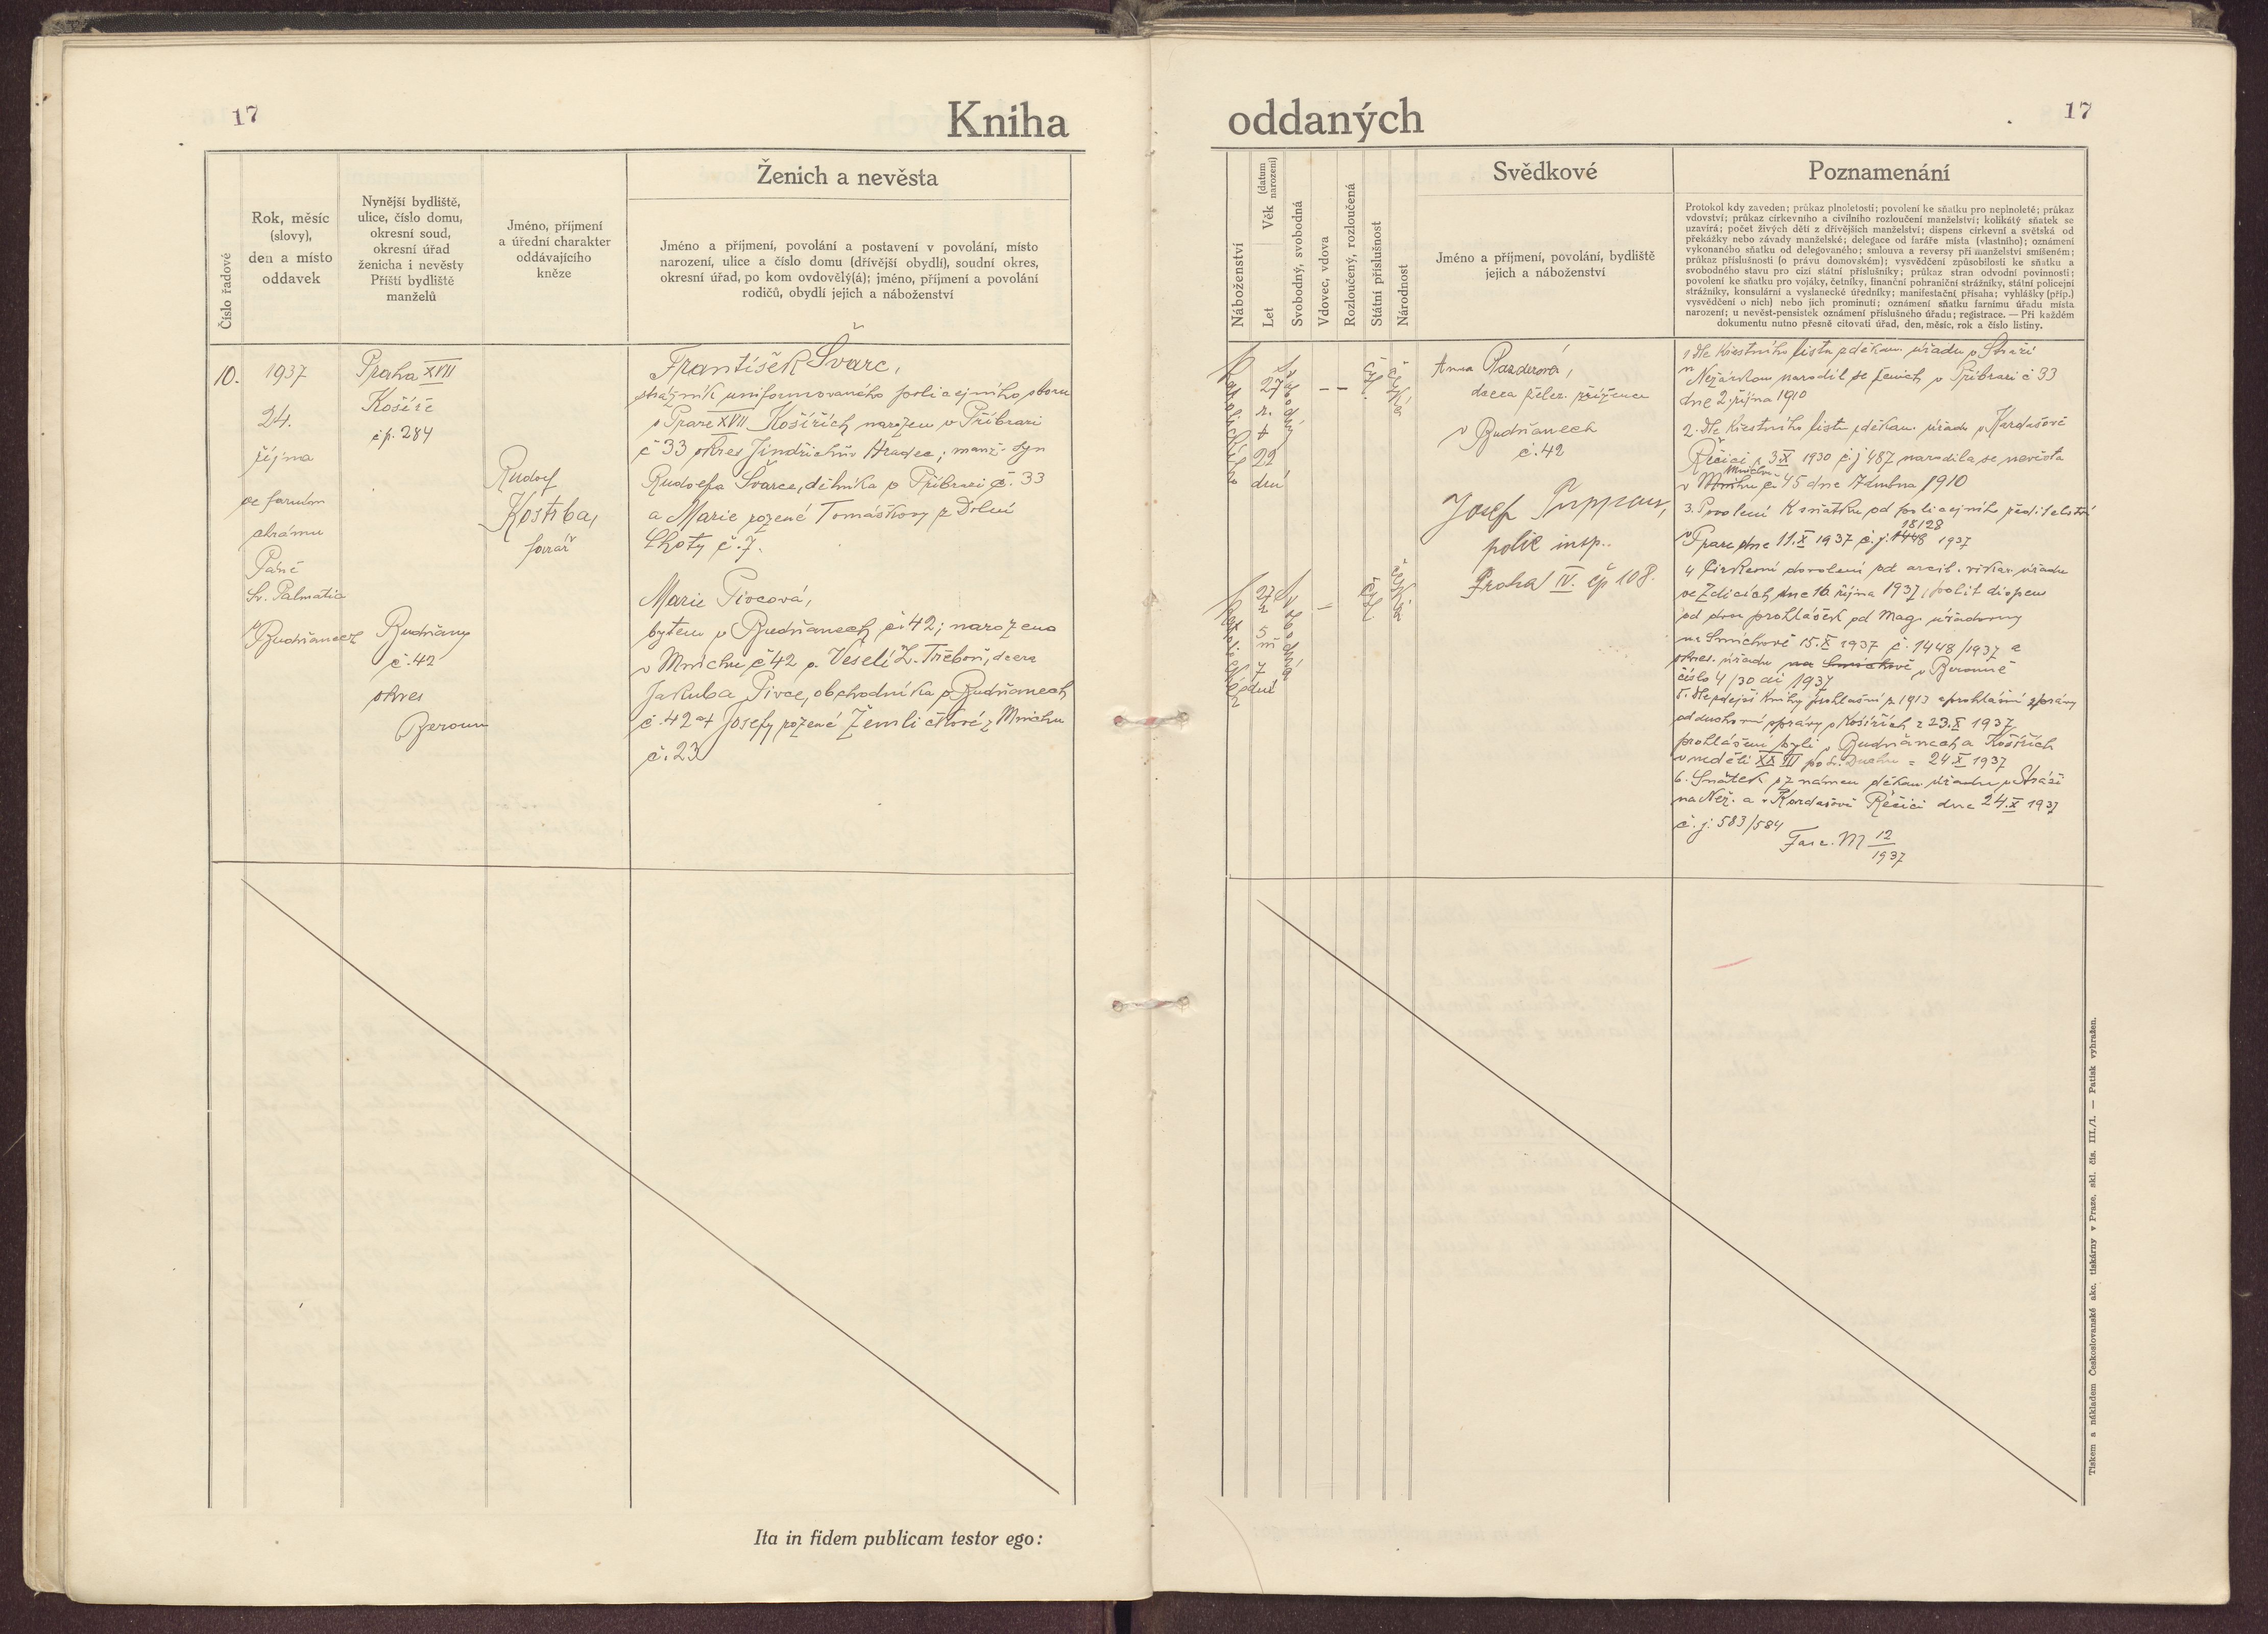 17
Kniha
Číslo řadové
Rok, měsíc
(slovy),
den a místo
oddavek
Nynější bydliště,
ulice, číslo domu,
okresní soud,
okresní úřad
ženicha i nevěsty
Příští bydliště
manželů
Jméno, příjmení
a úřední charakter
oddávajícího
kněze
Ženich a nevěsta
Jméno a příjmení, povolání a postavení v povolání, místo
narození, ulice a číslo domu (dřívější obydlí), soudní okres,
okresní úřad, po kom ovdovělý(á); jméno, příjmení a povolání
rodičů, obydlí jejich a náboženství
10.
1937
24.
října
ve farním
chrámu
Páně
Sv. Palmatia
v Budňanech
Praha XVII
Košíře
čp. 284
Budňany
č. 42
okres
Beroun
Rudolf
Kostrba,
farář
František Švarc,
strážník uniformovaného policejního sboru
v Praze XVII Košířích narozen v Příbrazi
č 33 okres Jindřichův Hradec; manž. syn
Rudolfa Švarce, dělníka v Příbrazi č. 33
a Marie rozené Tomáškovy z Dolní
Lhoty č. 7.
Marie Pivcová,
bytem v Budňanech č. 42; narozena
v Mnichu č 42 o. Veselí L. Třeboň, dcera
Jakuba Pivce, obchodníka v Budňanech
č. 42 a Josefy rozené Žemličkové z Mnichu
č. 23
Ita in fidem publicam testor ego:
oddaných
17
Náboženství
Let
Věk (datum narození)
Svobodný, svobodná
Vdovec, vdova
Rozloučený, rozloučená
Státní příslušnost
Národnost
Svědkové
Jméno a příjmení, povolání, bydliště
jejich a náboženství
Poznamenání
Protokol kdy zaveden; průkaz plnoletosti; povolení ke sňatku pro neplnoleté; průkaz
vdovství; průkaz církevního a civilního rozloučení manželství; kolikátý sňatek se
uzavírá; počet živých dětí z dřívějších manželství; dispens církevní a světská od
překážky nebo závady manželské; delegace od faráře místa (vlastního); oznámení
vykonaného sňatku od delegovaného; smlouva a reversy při manželství smíšeném;
průkaz příslušnosti (o právu domovském); vysvědčení způsobilosti ke sňatku a
svobodného stavu pro cizí státní příslušníky; průkaz stran odvodní povinnosti;
povolení ke sňatku pro vojáky, četníky, finanční pohraniční strážníky, státní policejní
strážníky, konsulární a vyslanecké úředníky; manifestační přísaha; vyhlášky (příp.)
vysvědčení o nich) nebo jich prominutí; oznámení sňatku farnímu úřadu místa
narození; u nevěst-pensistek oznámení příslušného úřadu; registrace. — Při každém
dokumentu nutno přesně citovati úřad, den, měsíc, rok a číslo listiny.
27
r.
22
dní
27
r
5
m
7
dní
Anna
dcera želez. zřízence
v Budňanech
č. 42
Josef
polic insp..
Praha IV. čp 108.
1 dle křestního listu děkan. úřadu v Stráži
n Nežárkou narodil se ženich v Příbrazi č 33
dne 2. října 1910
2. dle křestního listu děkan. úřadu v Kardašově
Řečici z 3 X 1930 č. j 487 narodila se nevěsta
v Mnichu č 45 dne 17 dubna 1910
3. Povolení k sňatku od policejního ředitelství
v Praze dne 11. X 1937 č. j. 18128 1937
4 Církevní dovolení od arcib. vikar. úřadu
ve Zdicích dne 16. října 1937, polit dispens
od dvou prohlášek od Mag. úřadovny
na Smíchově 15. X 1937 č. 1448/1937 a
okres. úřadu na Smíchově v Berouně
číslo 4/30 ai 1937
5. dle zdejší knihy prohlášní z 1913 a prohlášní zprávy
od duchovní správy v Košířích z 23. X 1937
prohlášeni byli v Budňanech a Košířích
v neděli XXIII po sv. Duchu = 24 X 1937
6. Sňatek oznámen děkan. úřadu v Stráži
na Než. a v Kardašově Řečici dne 24. X 1937
č. j: 583/584
Fasc. M 12
1937
Tiskem a nákladem Československé akc. tiskárny v Praze, skl. čís. III./1. — Patisk vyhražen.